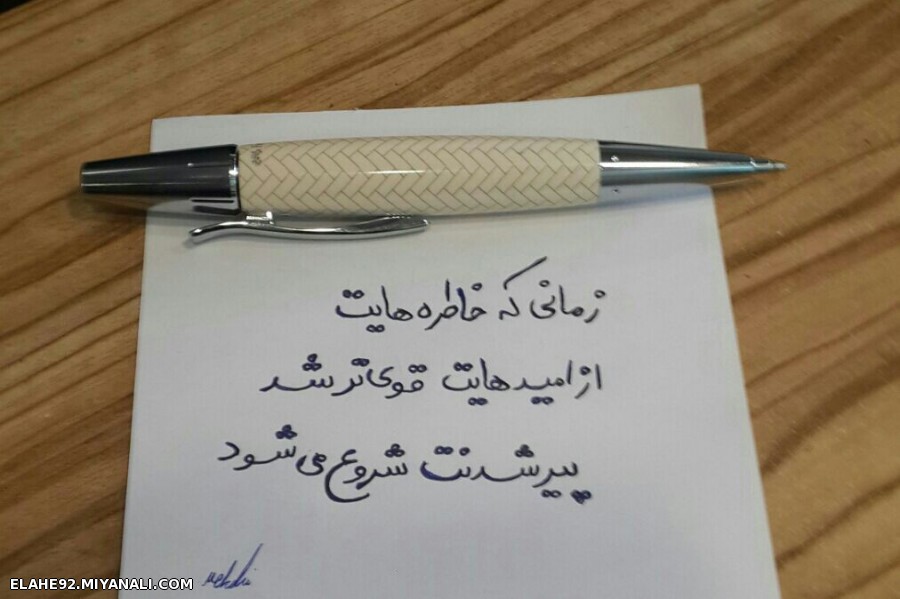 زمانی که خاطره هایت
از امید هایت قوی تر شد
پیر شدنت شروع می شود
ELAHE92.MIYANALI.COM